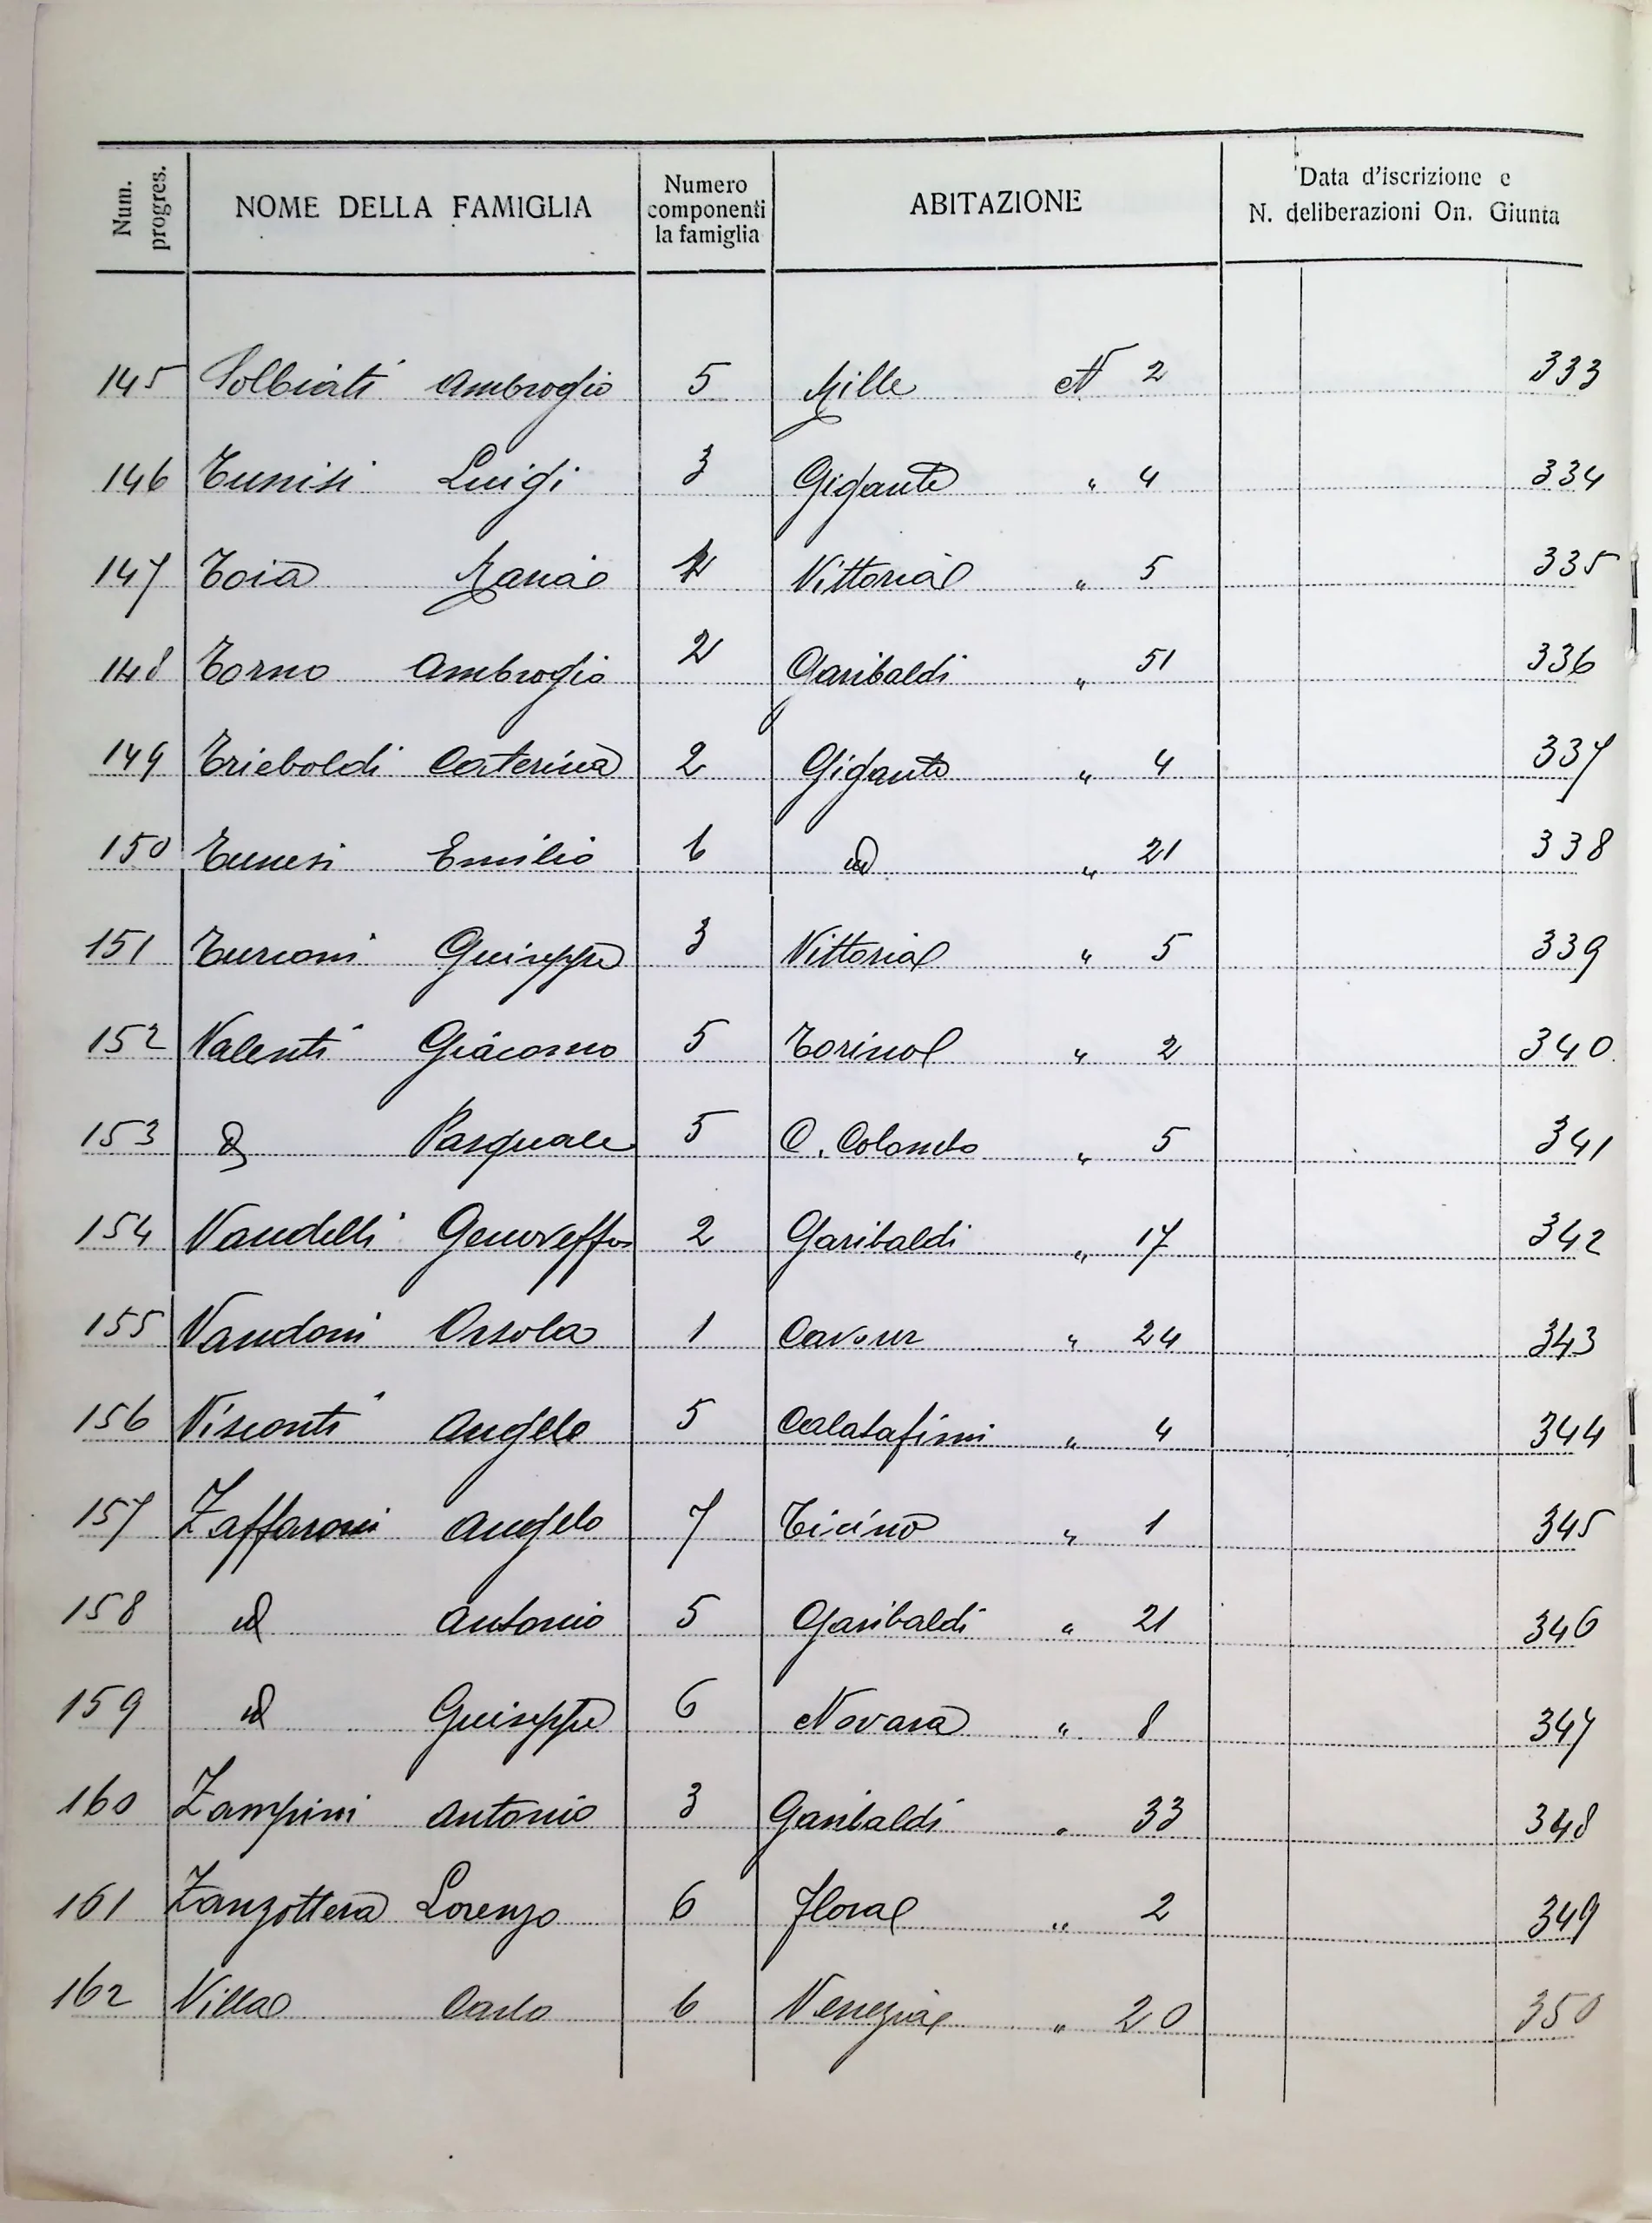 Num. progres. NOME DELLA FAMIGLIA Numero componenti la famiglia ABITAZIONE Data d'iscrizione e N. deliberazioni On. Giunta
145 Solbiati Ambrogio 5 Mille N 2 333
146 Tunisi Luigi 3 Gigante " 4 334
147 Toia Maria Vittoria " 5 335
148 Torno Ambrogio 2 Garibaldi " 51 336
149 Trieboldi Caterina 2 Gigante " 4 337
150 Tunesi Emilio 6 id " 21 338
151 Turconi Giuseppe 3 Vittoria " 5 339
152 Valenti Giacomo 5 Torino " 2 340
153 id Pasquale 5 C. Colombo " 5 341
154 Vandelli Genoveffa 2 Garibaldi " 17 342
155 Vandoni Orsola 1 Cavour " 24 343
156 Visconti Angelo 5 Calatafimi " 4 344
157 Zaffaroni Angelo 7 Ticino " 1 345
158 id Antonio 5 Garibaldi " 21 346
159 id Giuseppe 6 Novara " 8 347
160 Zampini Antonio 3 Garibaldi " 33 348
161 Zanzottera Lorenzo 6 Flora " 2 349
162 Villa Carlo 6 Venezia " 20 350